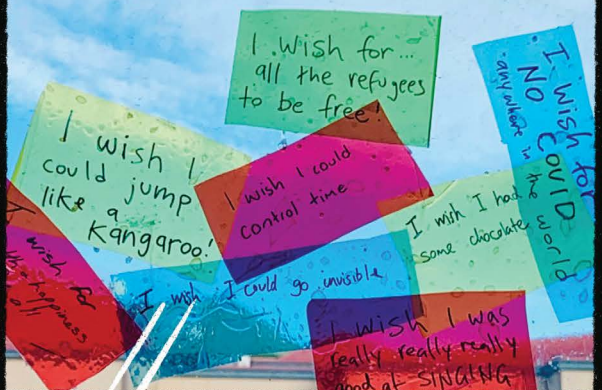 I wish for...
all the refugees
to be free!
I wish for
NO COVID
anywhere in the world
I wish I
could jump
like a
Kangaroo!
I wish I could
control time
I wish I had
some chocolate
I wish for
happiness
all
I wish I could go invisible
I wish I was
really really really
good at SINGING